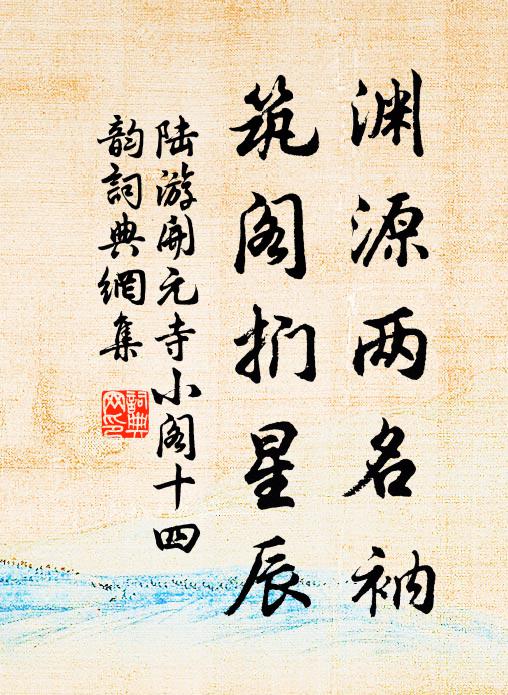 渊源两名衲
筑阁扪星辰
陆游开元寺小阁十四
韵詞典網集
詞典网印